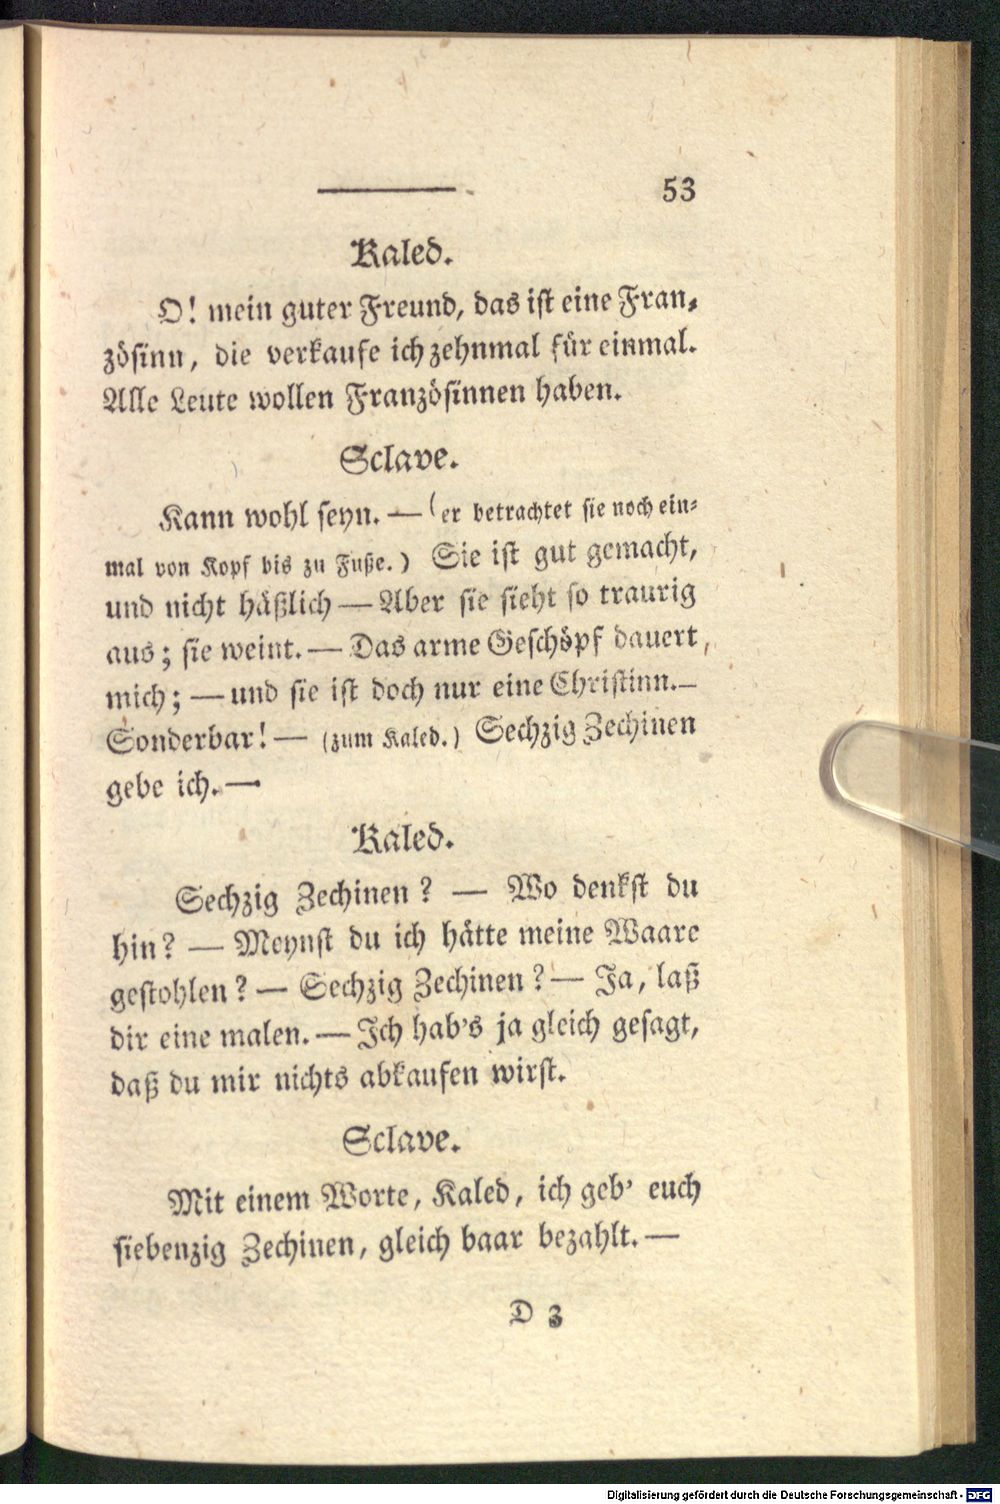 53
Kaled.
O! mein guter Freund, das ist eine Fran-
zösinn, die verkaufe ich zehnmal für einmal.
Alle Leute wollen Französinnen haben.
Sclave.
Kann wohl seyn. — (er betrachtet sie noch ein-
mal von Kopf bis zu Fuße.) Sie ist gut gemacht,
und nicht häßlich — Aber sie sieht so traurig
aus; sie weint. — Das arme Geschöpf dauert,
mich; — und sie ist doch nur eine Christinn. —
Sonderbar! — (zum Kaled.) Sechzig Zechinen
gebe ich. —
Kaled.
Sechzig Zechinen? — Wo denkst du
hin? — Meynst du ich hätte meine Waare
gestohlen? — Sechzig Zechinen? — Ja, laß
dir eine malen. — Ich hab's ja gleich gesagt,
daß du mir nichts abkaufen wirst.
Sclave.
Mit einem Worte, Kaled, ich geb' euch
siebenzig Zechinen, gleich baar bezahlt. —
D 3
Digitalisierung gefördert durch die Deutsche Forschungsgemeinschaft - DFG